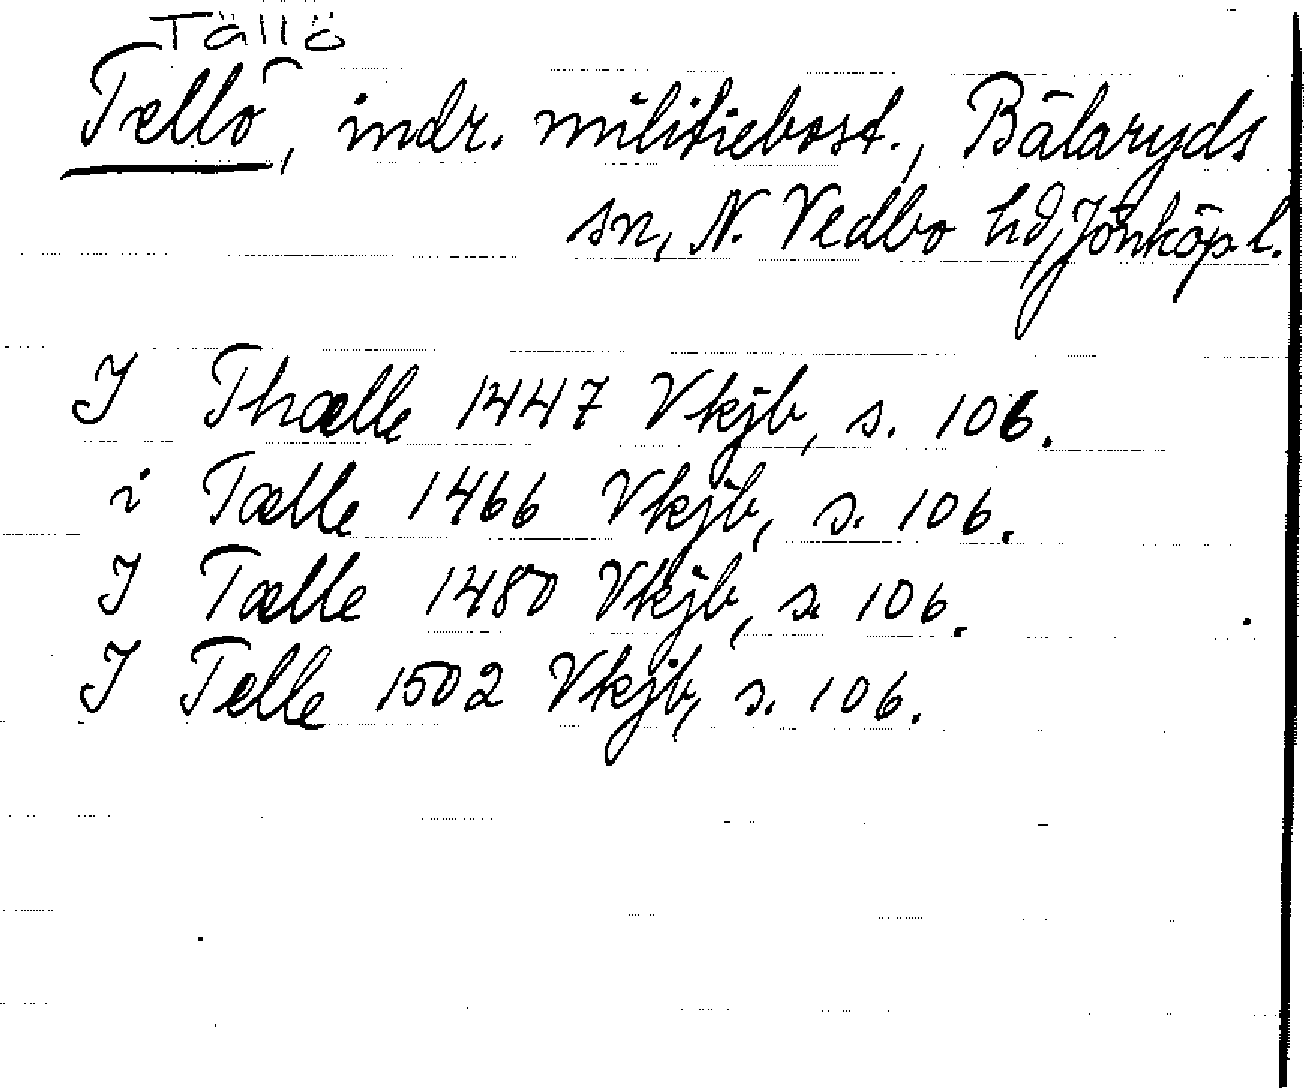 Tällö
Tellö, indr. militiebost., Bälaryds
sn, N. Vedbo hd, Jönköp. l.
I Thælle 1447 Vkjb, s. 106.
i Tælle 1466 Vkjb, s. 106.
I Tælle 1480 Vkjb, s. 106.
I Telle 1502 Vkjb, s. 106.